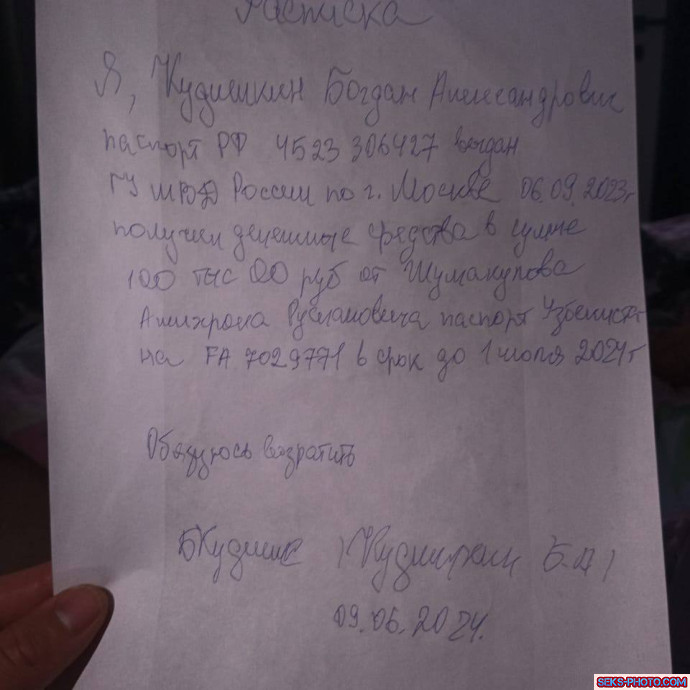 Расписка
Я, Кудишкин Богдан Александрович
паспорт РФ 4523 306427 выдан
ГУ МВД России по г. Москве 06.09.2023г
получил денежные средства в сумме
100 тыс 00 руб от Шумакулова
Амихрона Руслановича паспорт Узбекиста-
на FA 7029771 в срок до 1 июля 2024г
Обязуюсь возратить
БКудишк (Кудишкин Б.А)
09.06.2024.
SEKS-PHOTO.COM